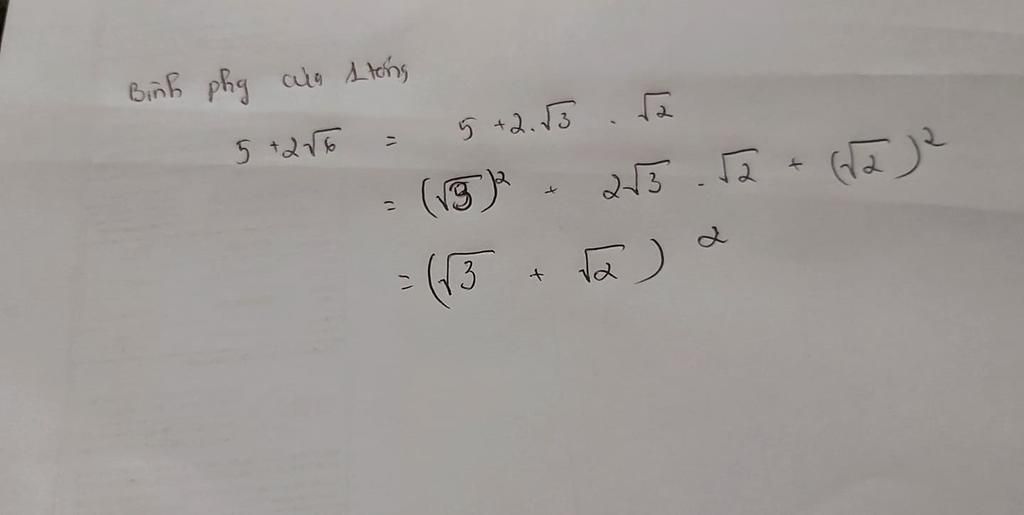 Bình phg của 1 tổng
5 + 2√6 = 5 + 2.√3 . √2
= (√3)² + 2√3 . √2 + (√2)²
= (√3 + √2)²